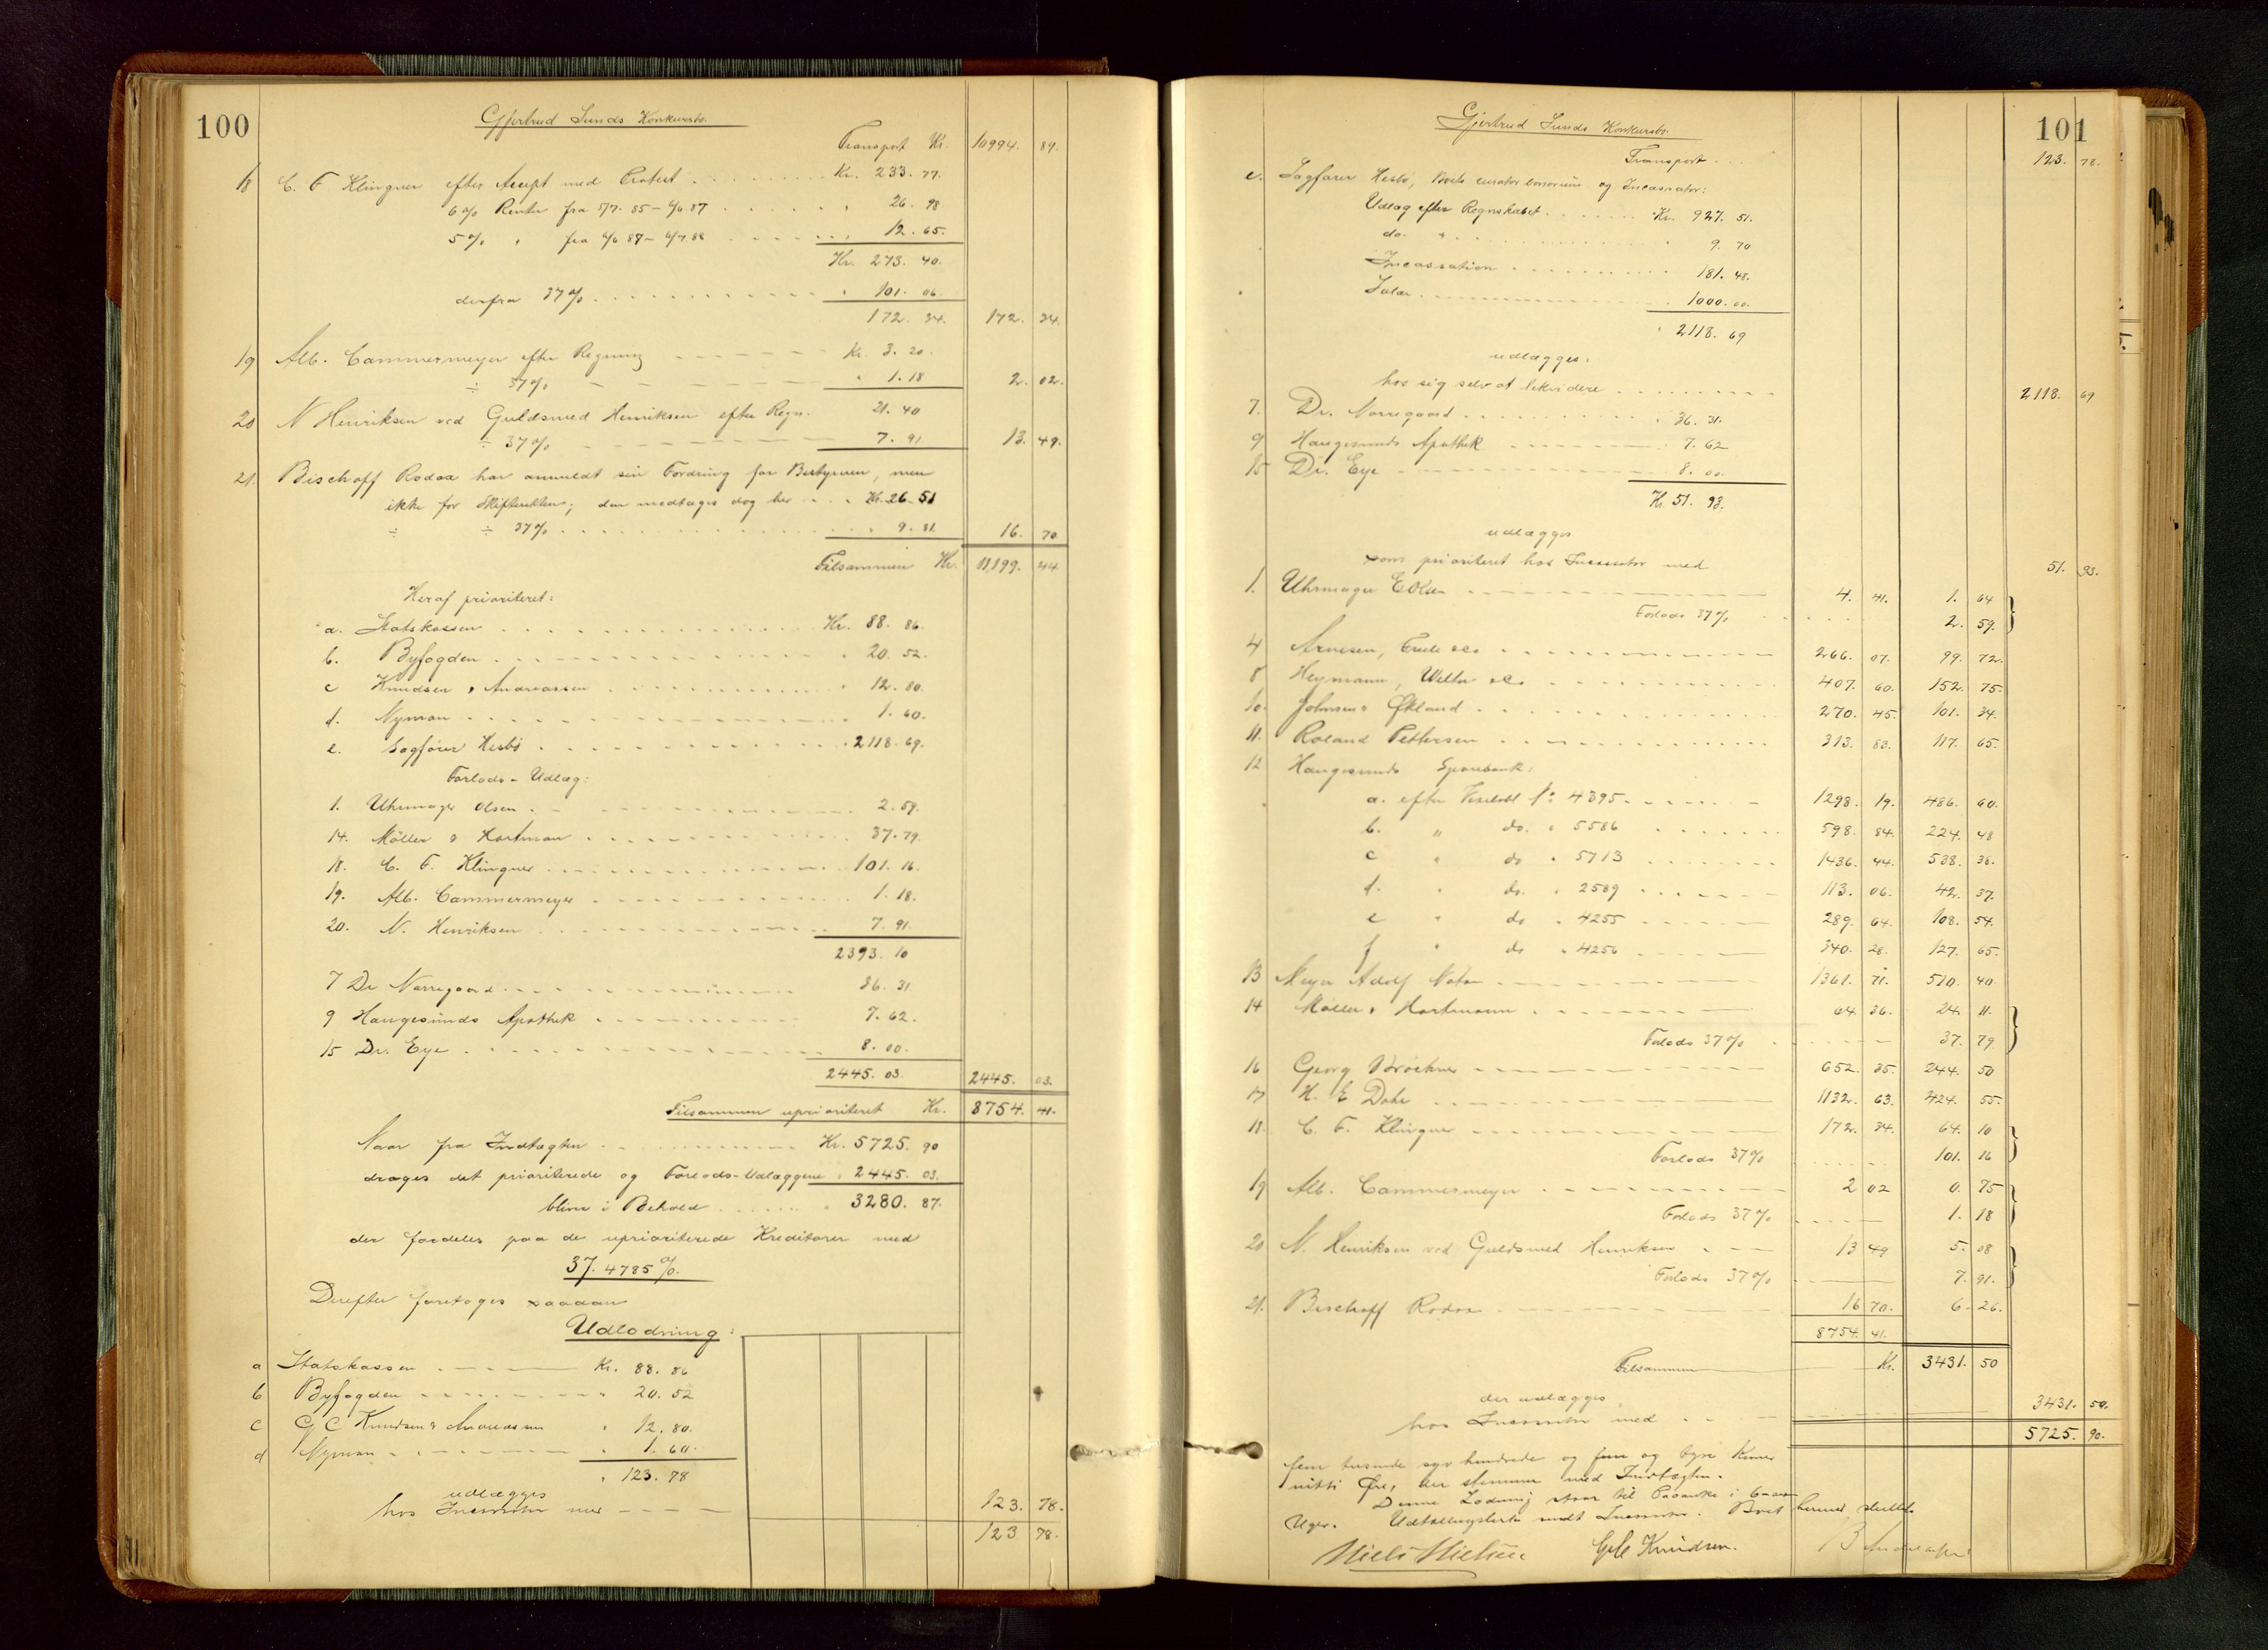 100
Gjertrud Sunds Konkursbo.
Transport Kr. 10994. 89.
18 C. F Klingner efter Accept med Protest . . . Kr. 233. 77.
6 % Renter fra 5/7. 85 – 6/6. 87 . . . " 26. 98
5 % " fra 6/6 87 – 6/7. 88 . . . " 12. 65.
Kr. 273. 40.
derfra 37 % . . . " 101. 06.
172. 34. 172. 34.
19 Alb. Cammermeyer efter Regning Kr. 3. 20.
÷ 37 % " 1. 18 2. 02.
20 N Henriksen ved Guldsmed Henriksen efter Regn. 21. 40
÷ 37 % 7. 91 13. 49.
21. Bischoff Rodox har anmeldt sin Fordring for Bestyreren, men
ikke for Skifteretten; den medtages dog her . . . Kr. 26. 51
÷ ÷ 37 % . . . " 9. 81. 16. 70
Tilsammen Kr. 11,199. 44
Heraf prioriteret:
a. Statskassen . . . Kr. 88. 86.
b. Byfogden . . . " 20. 52.
c Knudsen & Andreassen . . . " 12. 80.
d. Nyman . . . 1. 60.
e. Sagfører Hesbø . . . " 2118. 69.
Forlods-Udlæg:
1. Uhrmager Olsen . . . 2. 59.
14. Møller & Hartman . . . 37. 79.
18. C. F. Klingner . . . 101. 16.
19. Alb. Cammermeyer . . . 1. 18.
20. N. Henriksen . . . 7. 91.
2393. 10
7 Dr Nørregaard . . . 36. 31
9 Haugesunds Apothek . . . 7. 62.
15 Dr. Eye . . . 8. 00.
2445. 03. 2445. 03.
Tilsammen uprioriteret Kr. 8754. 41.
Naar fra Indtægten . . . Kr. 5725. 90
drages det prioriterede og Forlods-Udlæggene " 2445. 03.
bliver i Behold . . . " 3280. 87.
der fordeles paa de uprioriterede Kreditorer med
37. 4785 %.
Derefter foretages saadan
Udlodning:
a Statskassen . . . Kr. 88. 86
b Byfogden . . . " 20. 52
c G C Knudsen & Andreassen " 12. 80.
d Nyman . . . " 1. 60.
" 123. 78
udlægges
hos Incassator med 123. 78.
123 78.
101
Gjertrud Sunds Konkursbo.
Transport . . . 123. 78.
e. Sagfører Hesbø, Boets curator bonorum og Incassator:
Udlæg efter Regnskabet . . . Kr. 927. 51.
do. " . . . " 9. 70
Incassation . . . 181. 48.
Salær . . . " 1000. 00.
" 2118. 69
udlægges:
hos sig selv at likvidere . . . 2118. 69
7. Dr. Nørregaard . . . " 36. 31.
9 Haugesunds Apothek . . . 7. 62
15 Dr. Eye . . . 8. 00.
Kr. 51. 93.
udlægges
som prioriteret hos Incassator med 51. 93.
1. Uhrmager E Olsen 4. 41. 1. 64
Forlods 37 % . . . 2. 59.
4 Arnesen, & Co . . . 266. 07. 99. 72.
8 Heymann, Welter & Co . . . 407. 60. 152. 75.
10. Johnsen & Økland . . . 270. 45. 101. 34.
11. Roland Pettersen . . . 313. 83. 117. 65.
12 Haugesunds Sparebank:
a. efter Vexelobl № 4395. . . . 1298. 19. 486. 60.
b. " do. " 5586 . . . 598. 84. 224. 48
c " do " 5713 . . . 1436. 44. 538. 38.
d. " do. " 2589 . . . 113. 06. 42. 37.
e " do " 4255 . . . 289. 64. 108. 54.
f " do " 4256 . . . 340. 28. 127. 65.
13 Meyer Adolf Natan . . . 1361. 71. 510. 40.
14 Møller & Hartmann . . . 64. 36. 24. 11.
Forlods 37 % . . . 37. 79
16 Georg Brøchner . . . 652. 35. 244. 50
17 H. E Dahr . . . 1132. 63. 424. 55.
18. C. F. Klingner . . . 172. 34. 64. 10
Forlods 37 % . . . 101. 16
19 Alb. Cammermeyer . . . 2 02 0. 75
Forlods 37 % . . . 1. 18
20 N. Henriksen ved Guldsmed Henriksen 13 49 5. 08
Forlods 37 % . . . 7. 91.
21. Bischoff Rodox . . . 16 70. 6. 26.
8754. 41.
Tilsammen Kr. 3431. 50
der udlægges
hos Incassator med . . . 3431. 50.
5725. 90.
fem tusinde syv hundrede og fem og tyve Kroner
nitti Øre, der stemmer med Indtægten.
Denne Lodning staar til Paaanke i 6
Uger. Incassator. Boet hermed sluttet.
Niels Nielsen GC Knudsen. B Andreassen